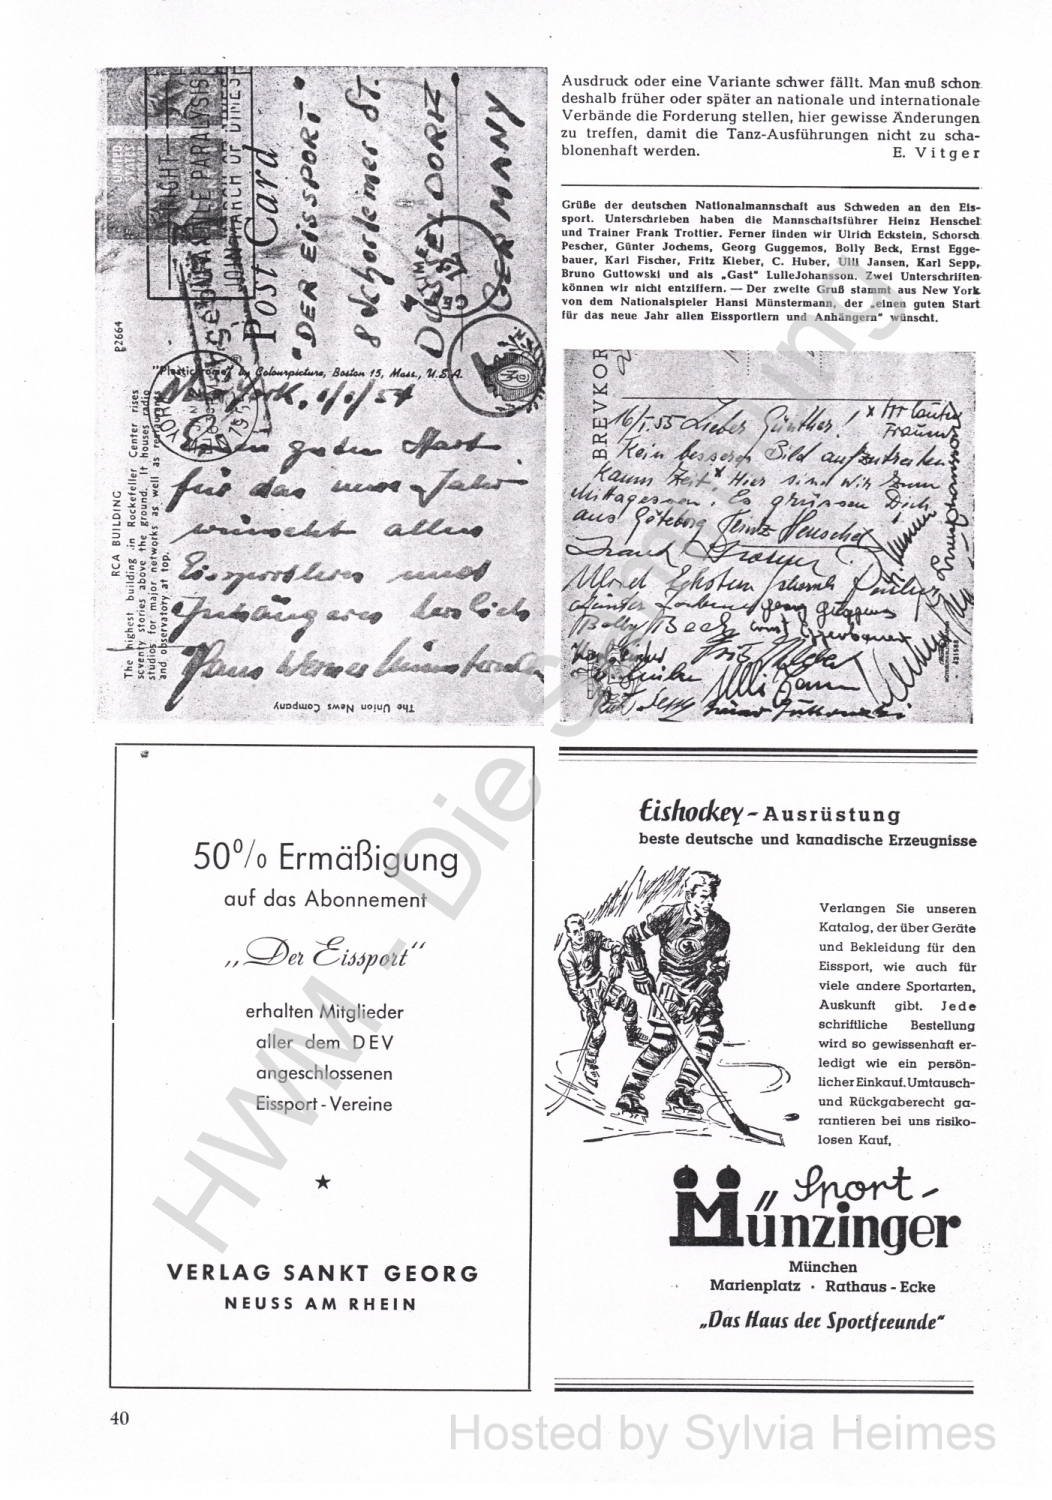 UNITED STATES
RIGHT
JOIN MARCH OF DIMES
Post Card
"DER EISSPORT"
8 Schorlemer St.
DÜSSELDORF
GERMANY
P2664
"Plastichrome" by Colourpicture, Boston 15, Mass., U.S.A.
RCA BUILDING
The highest building in Rockefeller Center rises
seventy stories above the ground. It houses radio
studios for major networks as well as restaurants
and observatory at top.
New York,
Einen guten Start
für das neue Jahr
wünscht allen
Eissportlern und
Anhängern herzlich
Hans Werner Münstermann
The Union News Company
Ausdruck oder eine Variante schwer fällt. Man muß schon
deshalb früher oder später an nationale und internationale
Verbände die Forderung stellen, hier gewisse Änderungen
zu treffen, damit die Tanz-Ausführungen nicht zu scha-
blonenhaft werden. E. Vitger
Grüße der deutschen Nationalmannschaft aus Schweden an den Eis-
sport. Unterschrieben haben die Mannschaftsführer Heinz Henschel
und Trainer Frank Trottier. Ferner finden wir Ulrich Eckstein, Schorsch
Pescher, Günter Jochems, Georg Guggemos, Bolly Beck, Ernst Egge-
bauer, Karl Fischer, Fritz Kleber, C. Huber, Ulli Jansen, Karl Sepp,
Bruno Guttowski und als „Gast" LulleJohansson. Zwei Unterschriften
können wir nicht entziffern. — Der zweite Gruß stammt aus New York
von dem Nationalspieler Hansi Münstermann, der „einen guten Start
für das neue Jahr allen Eissportlern und Anhängern" wünscht.
BREVKOR
16/1.55 Lieber Günther!
Kein besseres Bild aufzutreiben
kaum Zeit. Hier sind wir zum
Mittagessen. Es grüssen Dich
aus Göteborg Heinz Henschel
Bolly Beck
Ulli Jansen
50% Ermäßigung
auf das Abonnement
„Der Eissport"
erhalten Mitglieder
aller dem DEV
angeschlossenen
Eissport-Vereine
★
VERLAG SANKT GEORG
NEUSS AM RHEIN
Eishockey-Ausrüstung
beste deutsche und kanadische Erzeugnisse
Verlangen Sie unseren
Katalog, der über Geräte
und Bekleidung für den
Eissport, wie auch für
viele andere Sportarten,
Auskunft gibt. Jede
schriftliche Bestellung
wird so gewissenhaft er-
ledigt wie ein persön-
licher Einkauf. Umtausch-
und Rückgaberecht ga-
rantieren bei uns risiko-
losen Kauf,
Sport-
Münzinger
München
Marienplatz · Rathaus-Ecke
„Das Haus der Sportfreunde"
40
HWM - Die Sammlung
Hosted by Sylvia Heimes